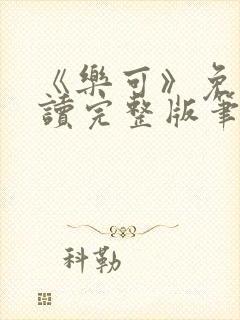 《樂可》免
讀完整版筆
科勒